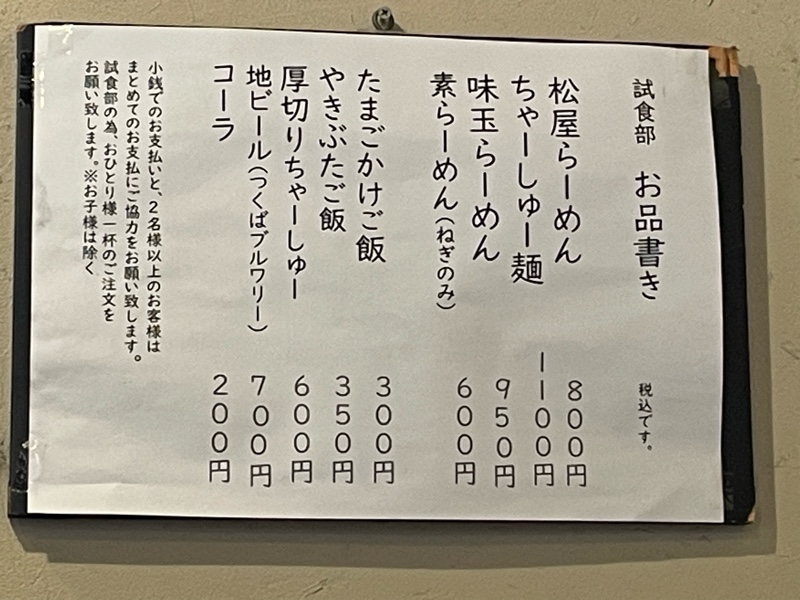 試食部 お品書き 税込です。
松屋らーめん 800円
ちゃーしゅー麺 1100円
味玉らーめん 950円
素らーめん(ねぎのみ) 600円
たまごかけご飯 300円
やきぶたご飯 350円
厚切りちゃーしゅー 600円
地ビール(つくばブルワリー) 700円
コーラ 200円
小銭でのお支払いと、2名様以上のお客様は
まとめてのお支払にご協力をお願い致します。
試食部の為、おひとり様一杯のご注文を
お願い致します。※お子様は除く